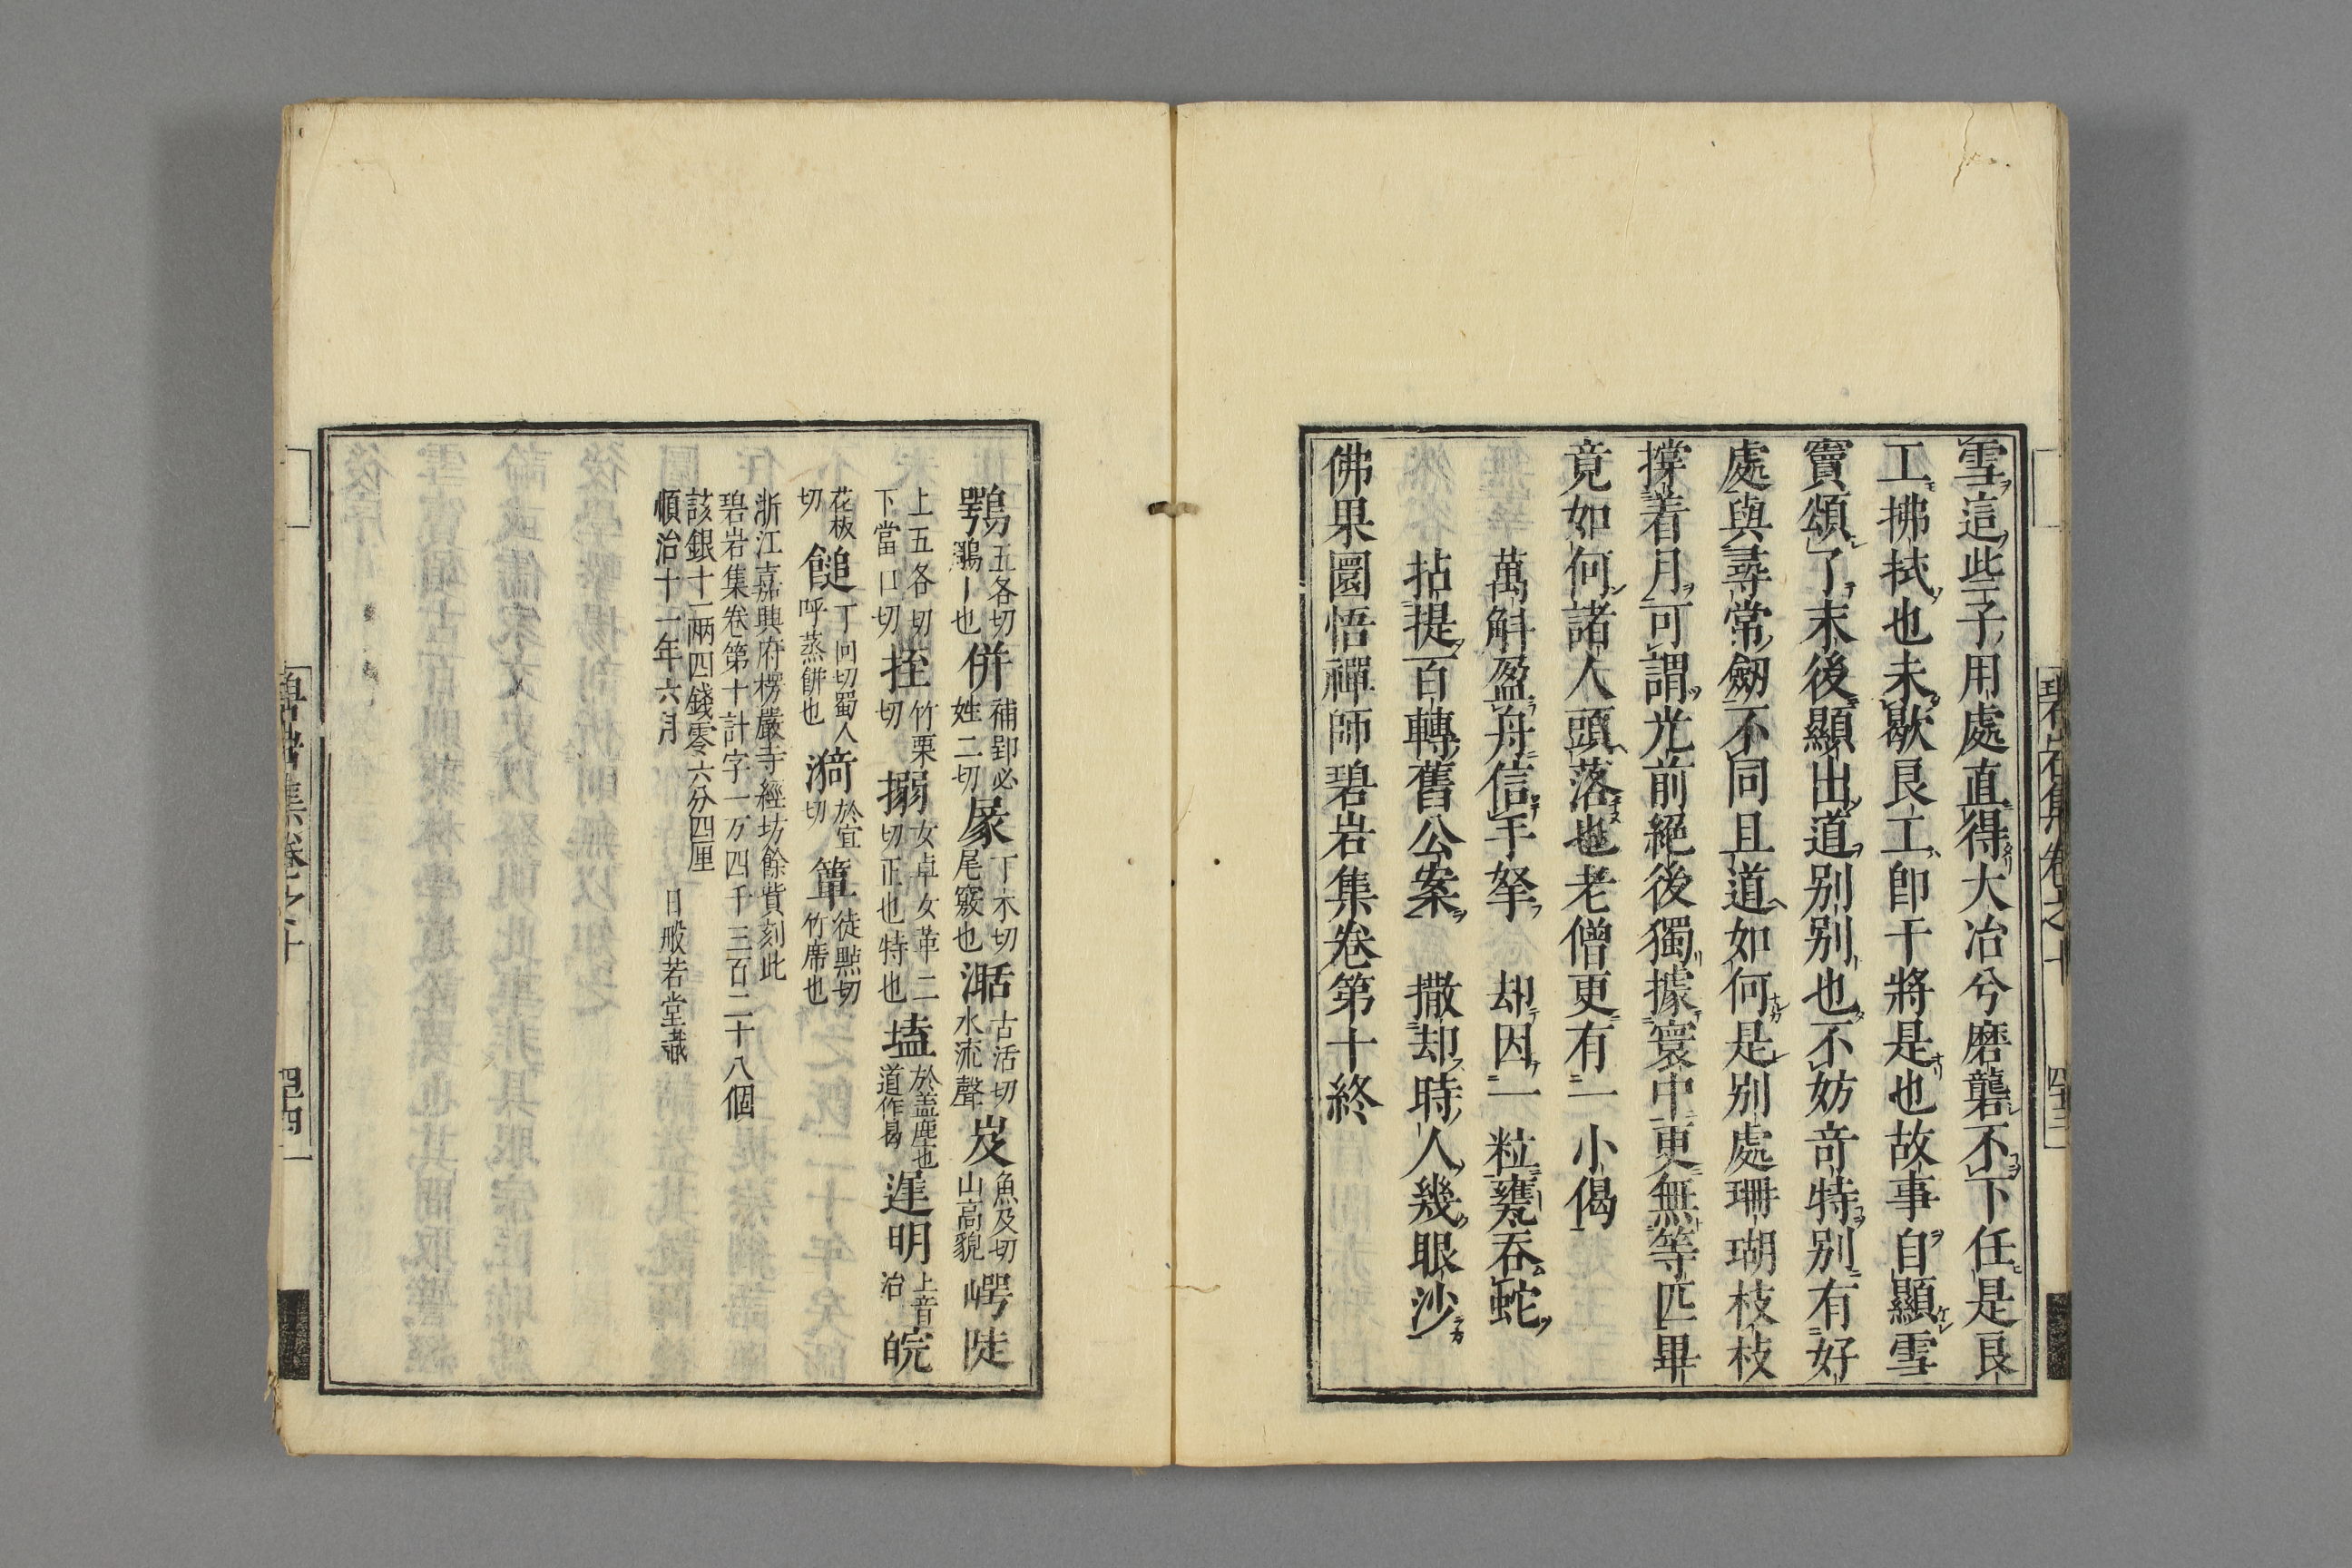 雪這些子用處直得大冶兮磨礱不下任是良
工拂拭也未歇良工即干將是也故事自顯雪
竇頌了末後顯出道别别也不妨竒特别有好
處與尋常劒不同且道如何是别處珊瑚枝枝
撑着月可謂光前絕後獨據寰中更無等匹畢
竟如何諸人頭落也老僧更有一小偈
萬斛盈舟信手拏 却因一粒甕吞蛇
拈提百轉舊公案 撒却時人幾眼沙
佛果圜悟禪師碧岩集卷第十終
碧岩集卷之十 四十三
鶚五各切鵰丨也 併補卽必姓二切 㞘丁木切尾竅也 湉古活切水流聲 岌魚及切山高貌 崿陡
上五各切下當口切 挃竹栗切 搦女卓女革二切正也特也 壒於盖塵也道作曷 遟明上音治 皖
花板切 䭔丁囘切蜀人呼蒸餅也 漪於宜切 簟徒㸃切竹席也
浙江嘉興府楞嚴寺經坊餘貲刻此
碧岩集卷第十計字一万四千三百二十八個
該銀十二兩四錢零六分四厘
順治十一年六月 日般若堂識
碧岩集卷之十 四十四